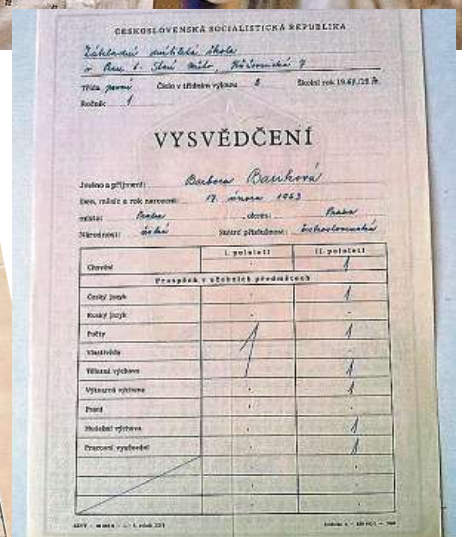 ČESKOSLOVENSKÁ SOCIALISTICKÁ REPUBLIKA
Základní devítiletá škola
v Praze 1. Staré město,
Třída první Číslo v třídním výkazu 2 Školní rok 19
Ročník 1
VYSVĚDČENÍ
Jméno a příjmení: Barbora
Den, měsíc a rok narození: 17. února 1963
místo: Praha okres: Praha
Národnost: česká Státní příslušnost: československá
I. pololetí II. pololetí
Chování 1
Prospěch v učebních předmětech
Český jazyk . 1
Ruský jazyk . .
Počty 1 1
Vlastivěda .
Tělesná výchova 1
Výtvarná výchova . 1
Psaní . .
Hudební výchova . 1
Pracovní vyučování . 1